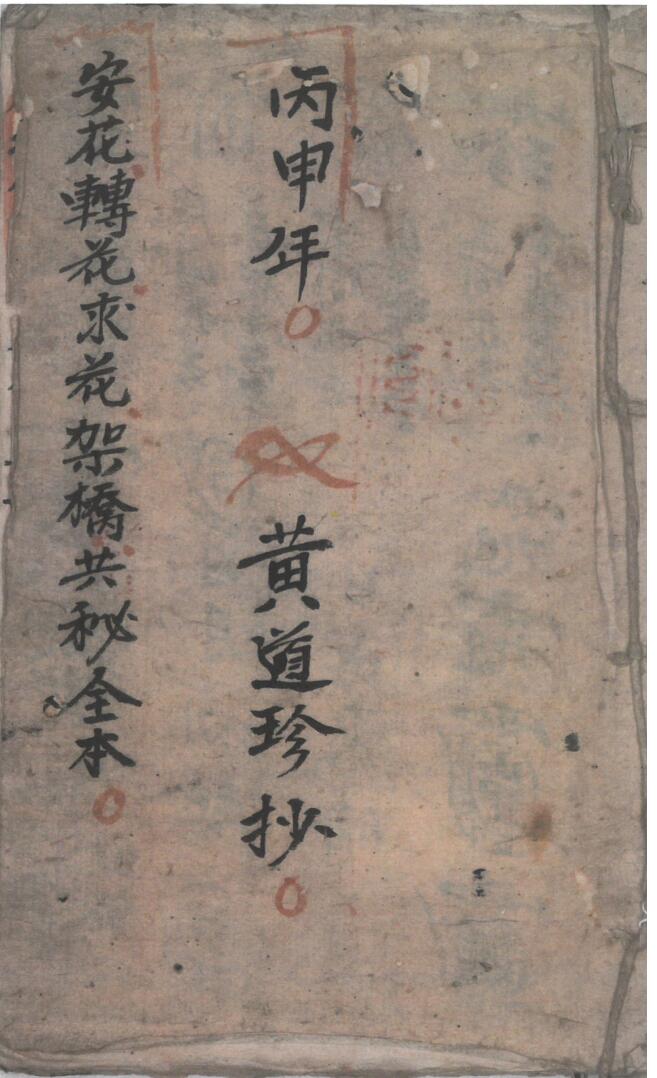 丙申年 黄道珍抄
安花轉花求花架橋共秘全本